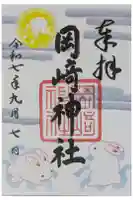 奉拝
岡崎神社
令和七年九月七日